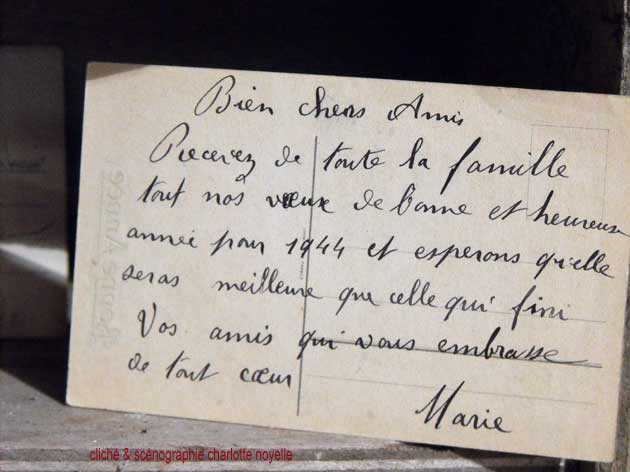 Bien chers Amis
Recevez de toute la famille
tout nos vœux de bonne et heureuse
année pour 1944 et esperons qu'elle
seras meilleure que celle qui fini
Vos amis qui vous embrasse
de tout cœur
Marie
cliché & scènographie charlotte noyelle